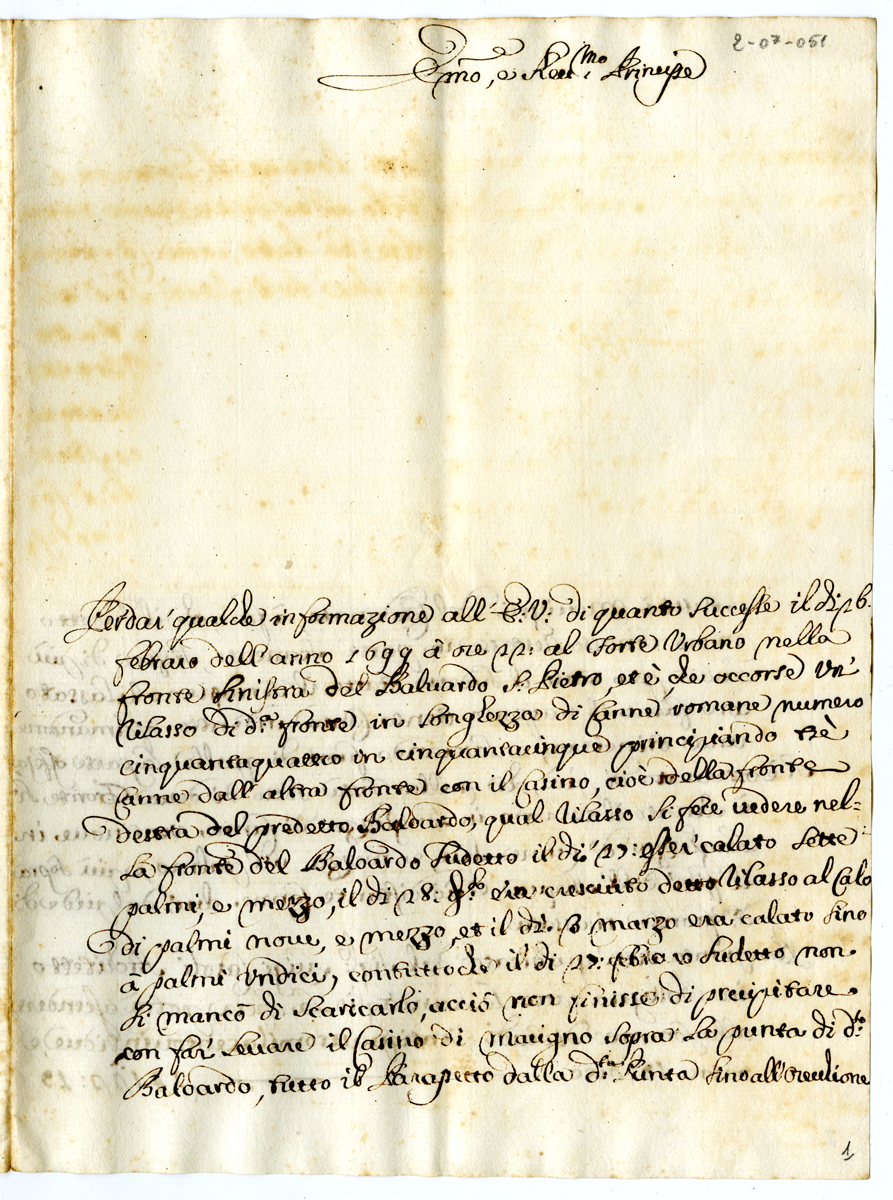 2-07-051
Em̃o, e Reu.mo Principe
Per dar qualche informazione all' E: V: di quanto successe il di 26.
febraio dell'anno 1699 à ore 22: al Forte Urbano nella
fronte sinistra del Baluardo S: Pietro, et è, che occorse un'
rilasso di d.a fronte in longhezza di Canne romane numero
cinquantaquattro in cinquantacinque principiando trè
Canne dall'altra fronte con il Casino, cioè della fronte
destra del predetto Baloardo, qual rilasso si fece vedere nel=
la fronte del Baloardo sudetto il di 27: esser calato sette
palmi, e mezzo, il di 28: era cresciuto detto rilasso al Calo
di palmi noue, e mezzo, et il di 3 marzo era calato sino
à palmi undici, contuttoche il di 27: febraio sudetto non
si mancò di scaricarlo, acciò non finisse di precipitare
con far leuare il Casino di macigno sopra la punta di d.o
Baloardo, tutto il Parapetto dalla d.a Punta sino all'orecchione
1